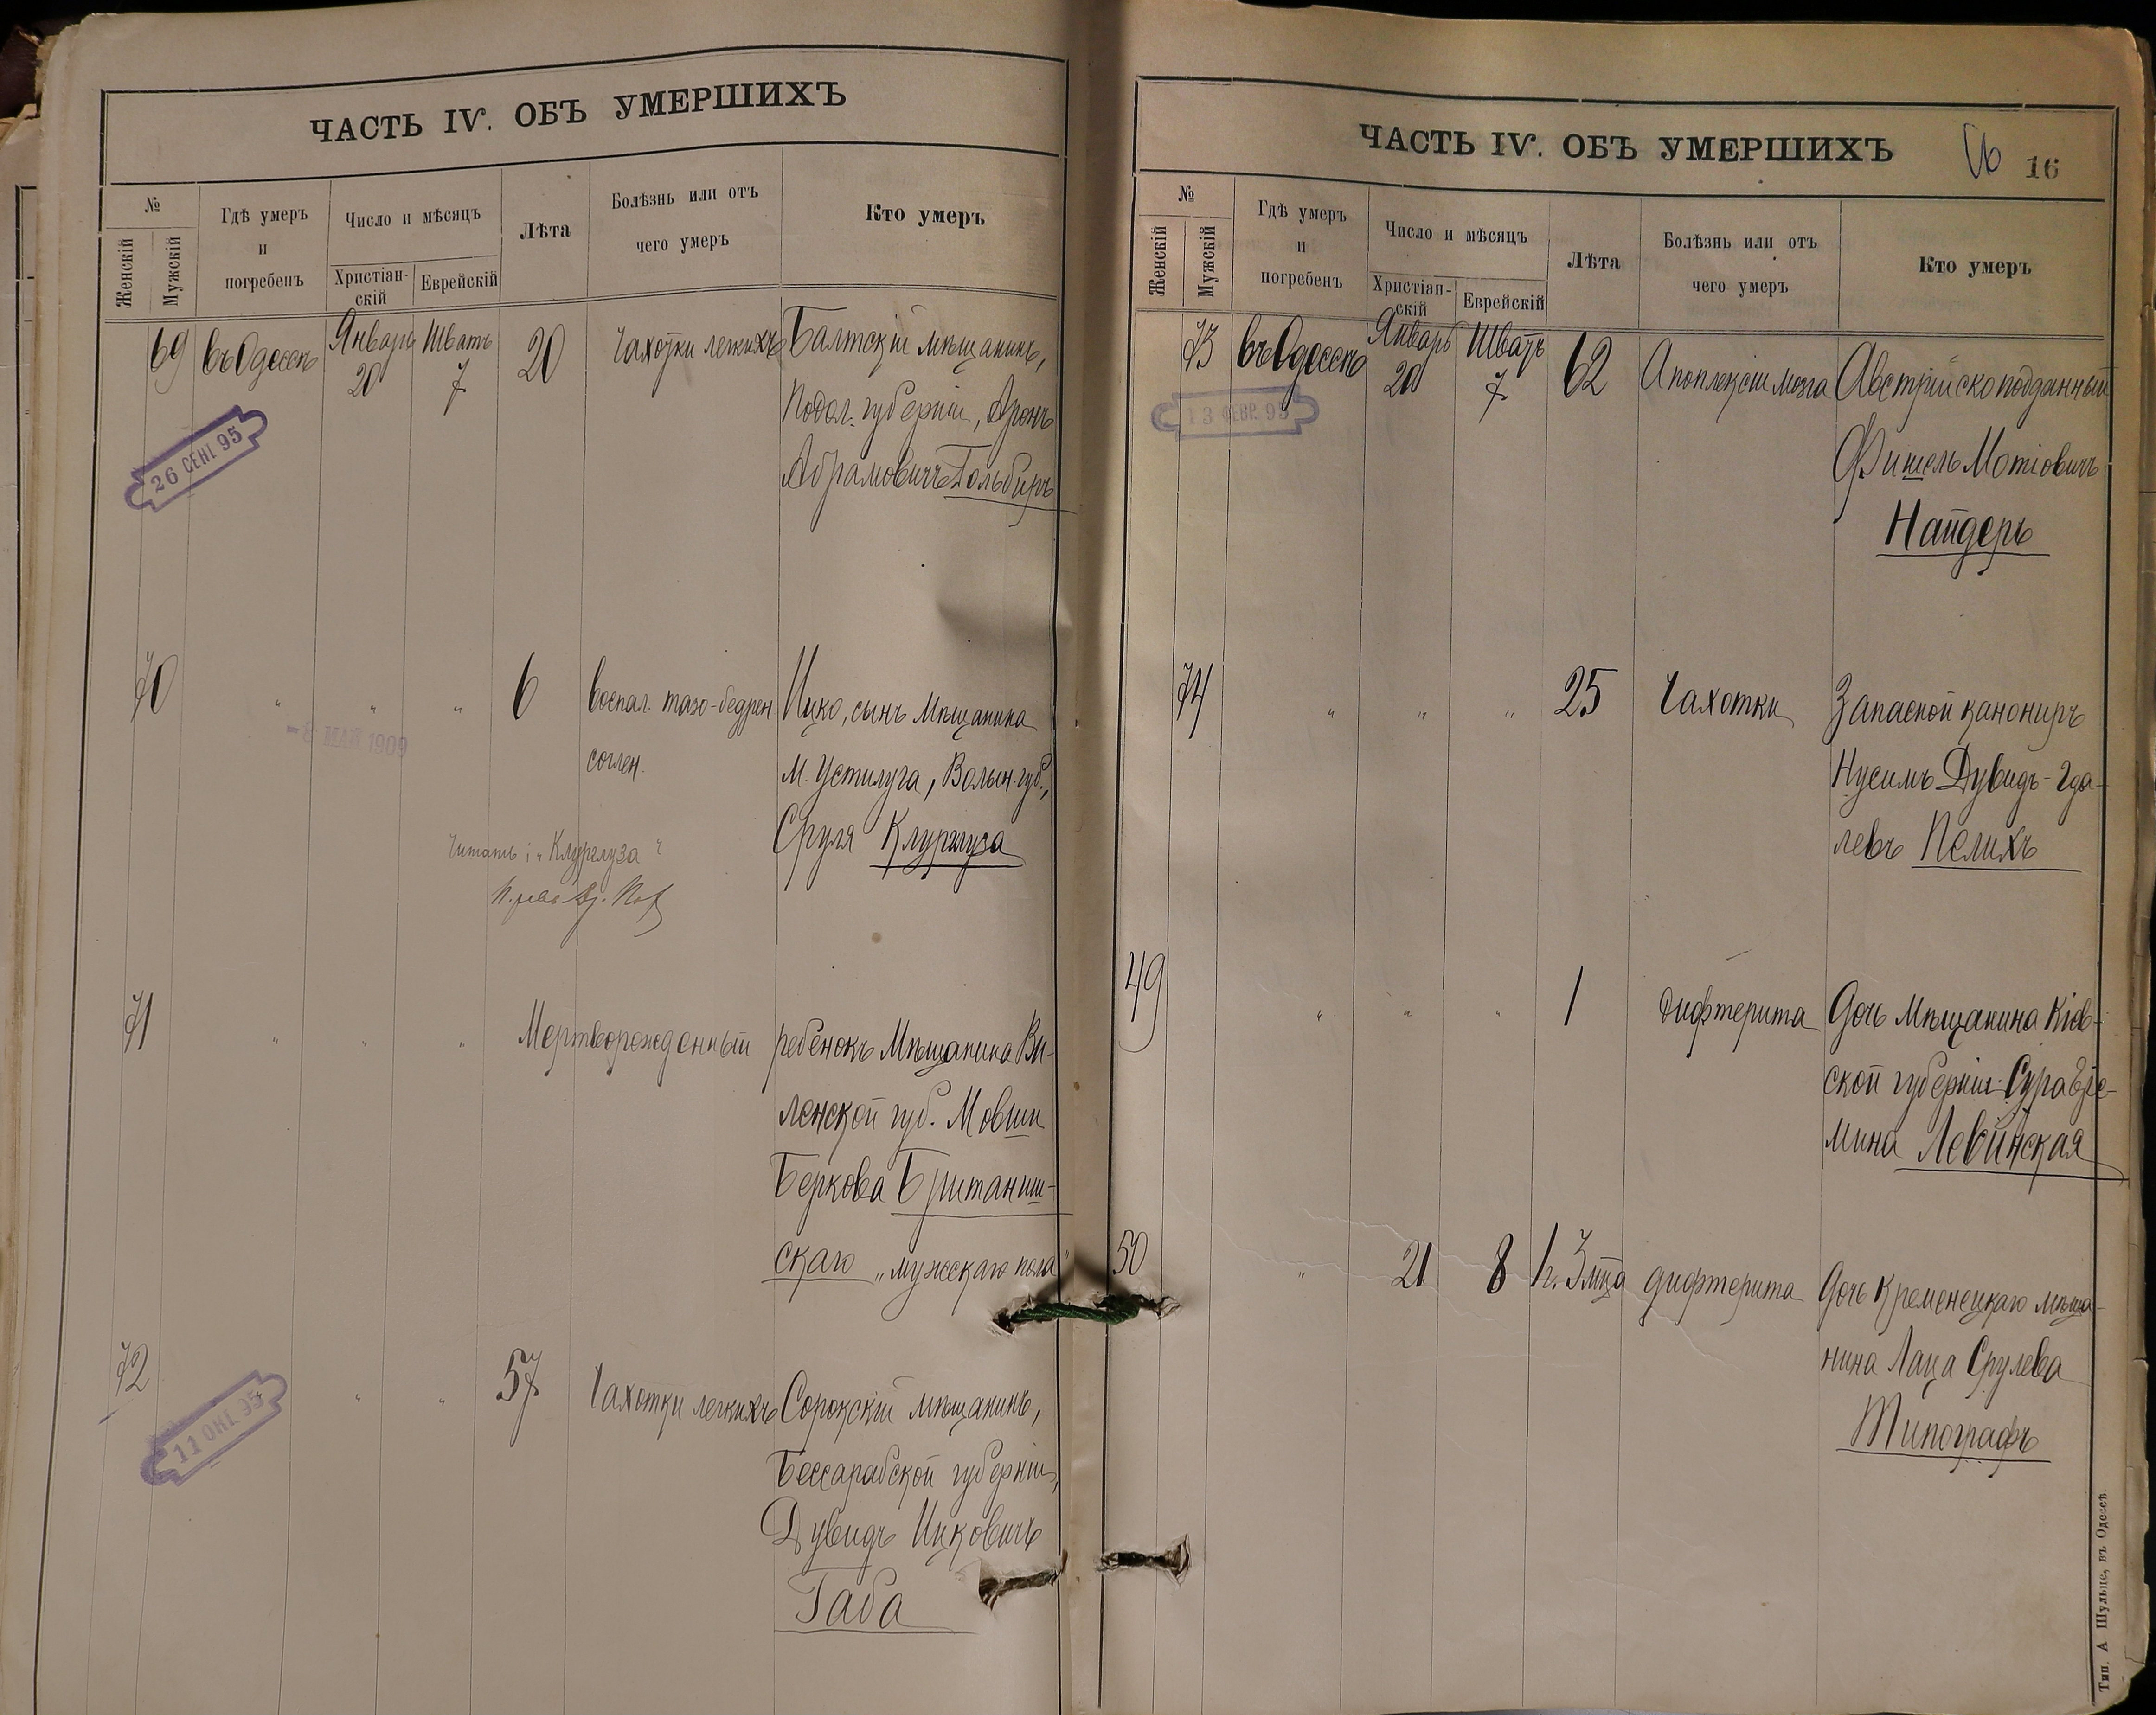 ЧАСТЬ IV. ОБЪ УМЕРШИХЪ
№
Женскій
Мужскій
Гдѣ умеръ
и
погребенъ
Число и мѣсяцъ
Христіан-
скій
Еврейскій
Лѣта
Болѣзнь или отъ
чего умеръ
Кто умеръ
69 въ Одессѣ Январь 20 Шватъ 7 20 Чахотки легкихъ Балтскій мѣщанинъ,
Подол. губерніи, Аронъ
Абрамовичъ Гольбиръ
26 СЕНТ 95
70 " " " 6 воспал. тазо-бедрен Ицко, сынъ мѣщанина
соглен. М. Устилуга, Волын. губ.,
Сруля Клурглуза
-8 МАЙ 1909
Читать: "Клурглуза"
71 " " " Мертворожденный ребенокъ мѣщанина Ви-
ленской губ. Мовши
Беркова Британиш-
скаго "мужскаго пола"
72 " " 57 Чахотки легкихъ Сорокскій мѣщанинъ,
Бессарабской губерніи,
Дувидъ Ицковичъ
Габа
11 ОКТ 95
ЧАСТЬ IV. ОБЪ УМЕРШИХЪ
16
№
Женскій
Мужскій
Гдѣ умеръ
и
погребенъ
Число и мѣсяцъ
Христіан-
скій
Еврейскій
Лѣта
Болѣзнь или отъ
чего умеръ
Кто умеръ
73 въ Одессѣ Январь 20 Шватъ 7 62 Апоплексіи мозга Австрійскоподданный
Фишель Мотіовичъ
Найдеръ
13 ФЕВР. 95
74 " " " 25 Чахотки Запасной канониръ
Нусимъ Дувидъ-Гда-
левъ Пелихъ
49 " " " 1 дифтерита Дочь мѣщанина Кіев-
ской губерніи Сура
мина Левинская
50 " 21 8 1 г. 3 мца дифтерита Дочь Кременецкаго мѣща-
нина Лаца Срулева
Типографъ
Тип. А Шульце, въ Одессѣ